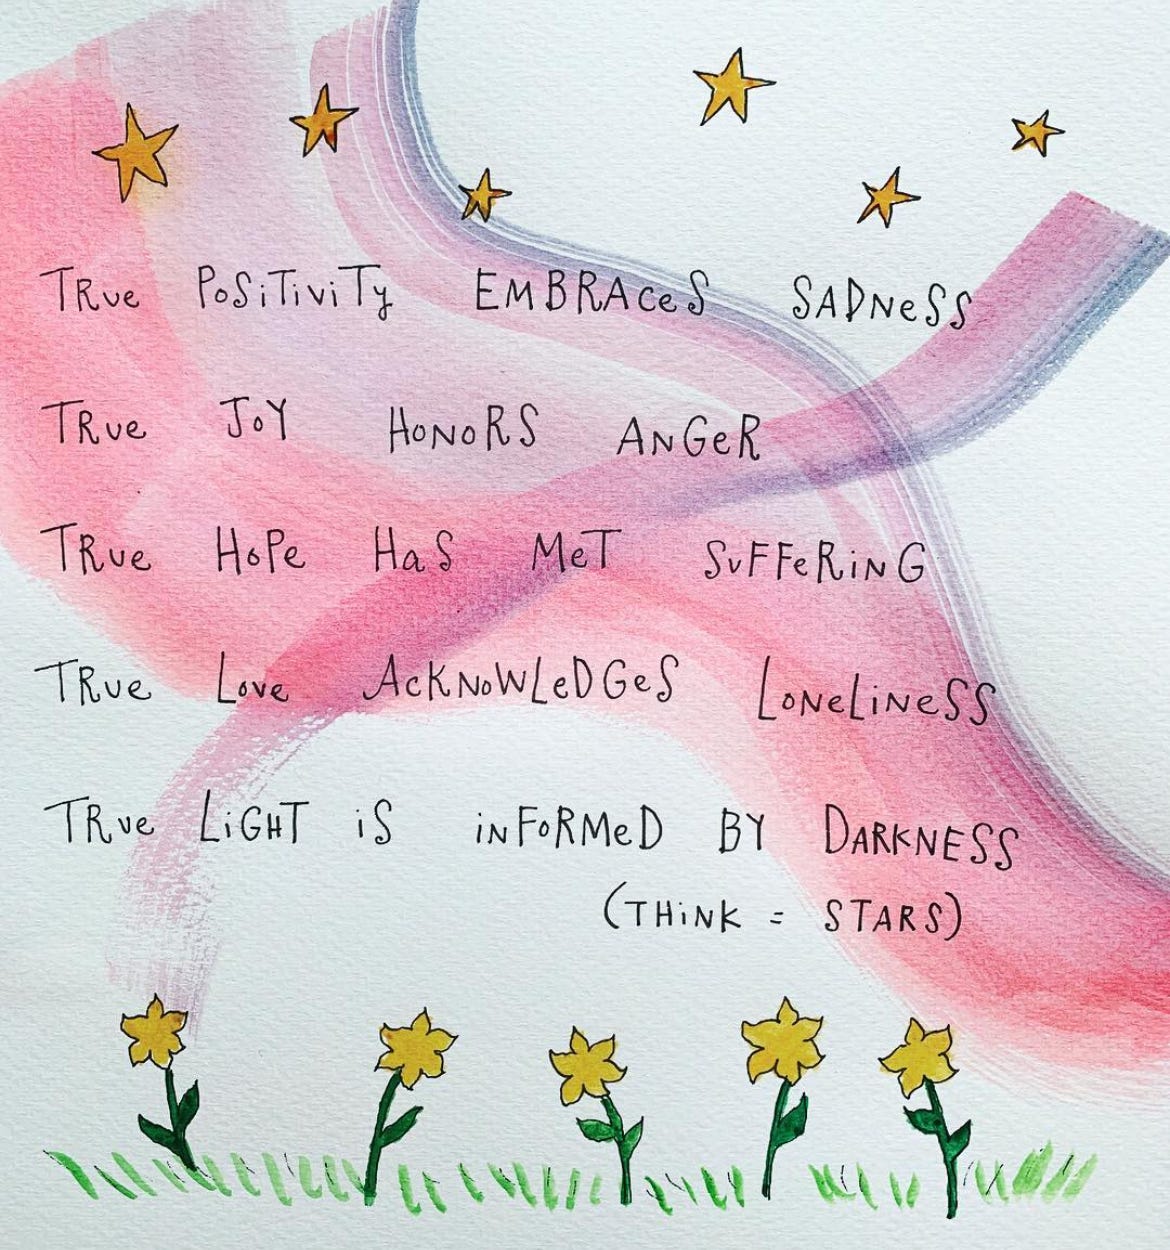 TRue PoSiTiviTy EMBRAceS SADNeSS
TRue JoY HoNoRS ANGeR
TRue HoPe HaS MeT SuFFeRiNG
TRue Love AcKNoWLeDGeS LoNeLiNeSS
TRue LiGHT iS iNFoRMeD BY DARKNESS
(THiNK = STARS)